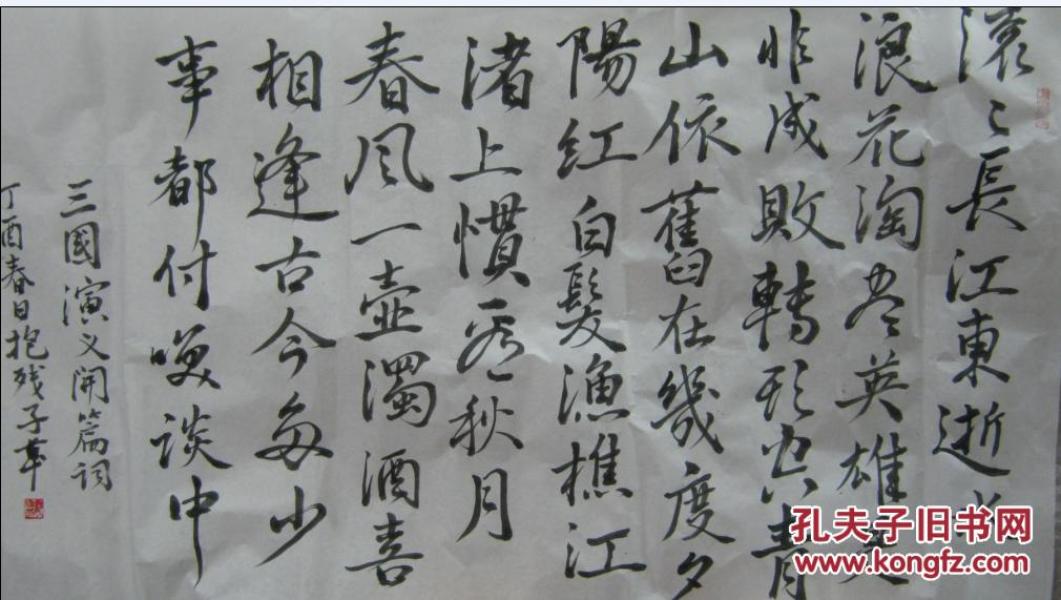 滚〻長江東逝水
浪花淘尽英雄是
非成敗轉頭空青
山依舊在幾度夕
陽紅白髮漁樵江
渚上慣看秋月
春風一壺濁酒喜
相逢古今多少
事都付笑談中
三國演义開篇词
丁酉春日抱残子草
孔夫子旧书网
www.kongfz.com